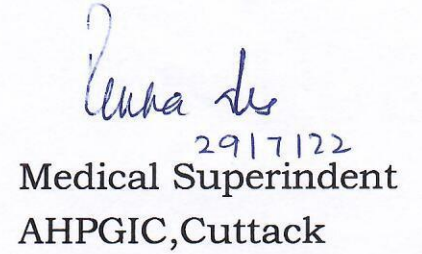 29/7/22
Medical Superindent
AHPGIC,Cuttack